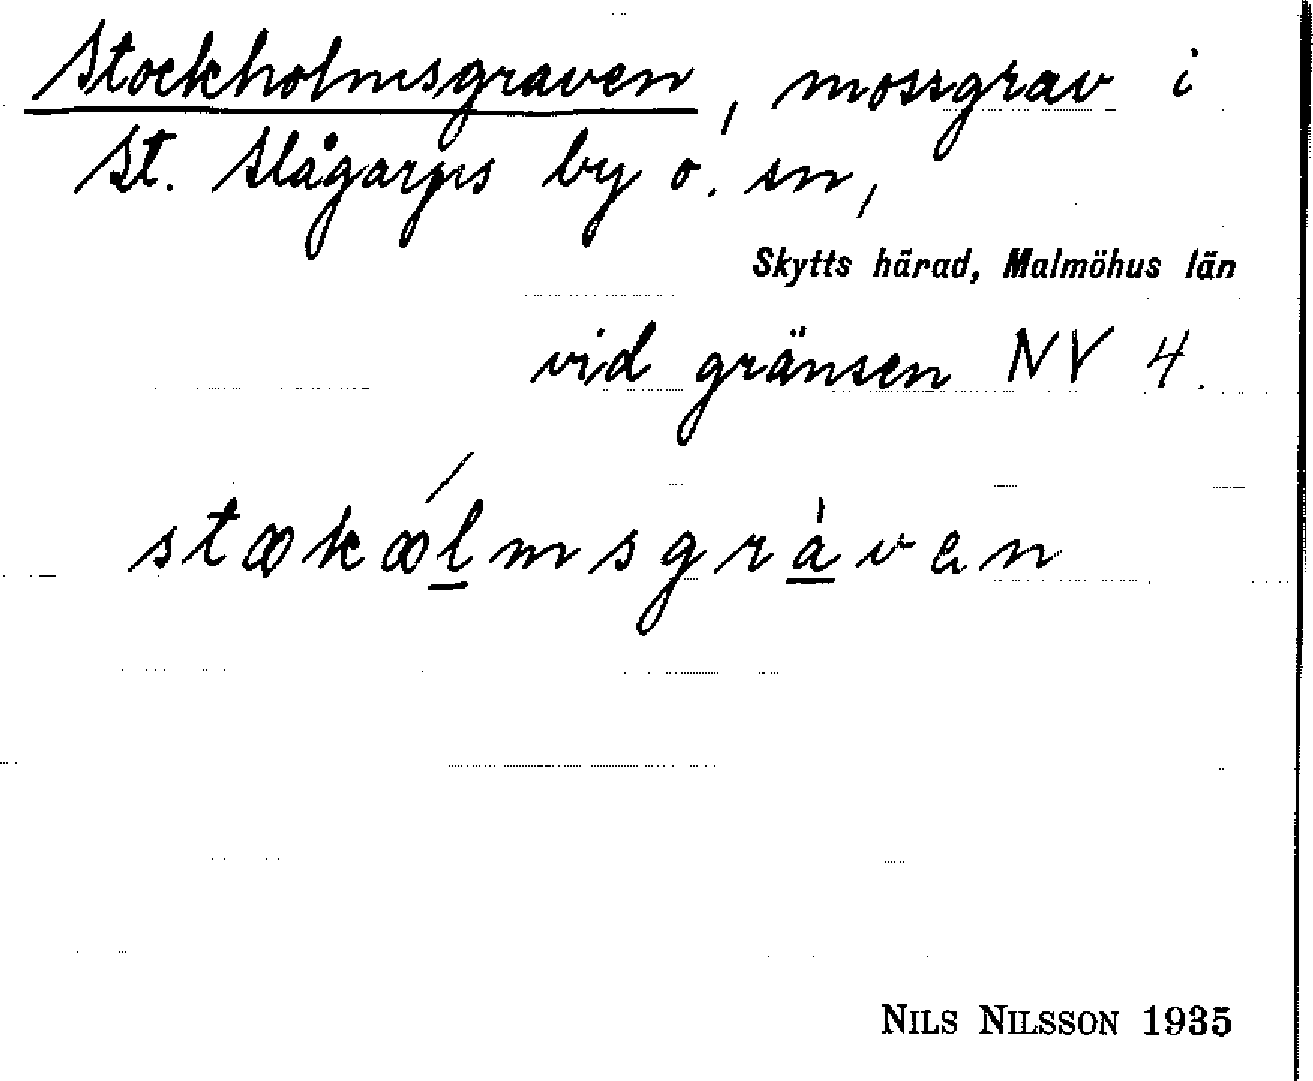 Stockholmsgraven, mossgrav i
St. Slågarps by o. sn,
Skytts härad, Malmöhus län
vid gränsen NV 4.
stωkωĺmsgràven
NILS NILSSON 1935